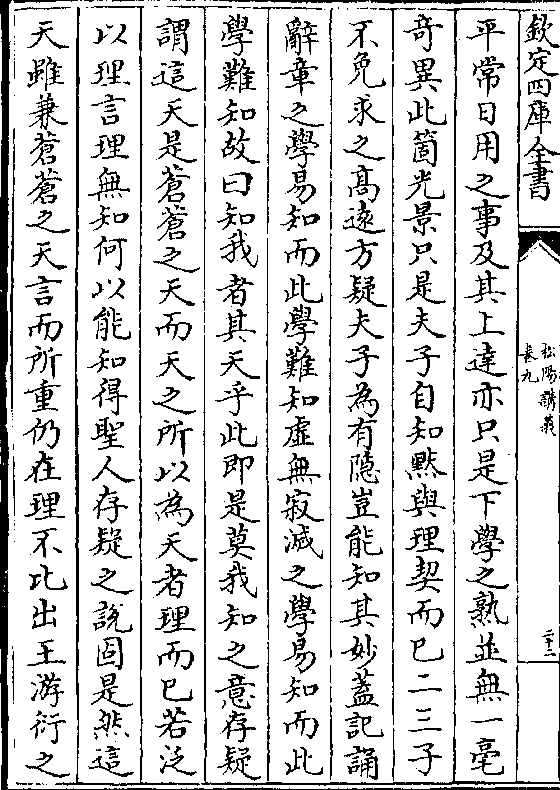 欽定四庫全書
松陽講義
卷九
二十三
平常日用之事及其上達亦只是下學之熟並無一毫
奇異此箇光景只是夫子自知黙與理契而已二三子
不免求之髙逺方疑夫子為有隠豈能知其妙蓋記誦
辭章之學易知而此學難知虚無寂滅之學易知而此
學難知故曰知我者其天乎此即是莫我知之意存疑
謂這天是蒼蒼之天而天之所以為天者理而已若泛
以理言理無知何以能知得聖人存疑之説固是然這
天雖兼蒼蒼之天言而所重仍在理不比出王游衍之